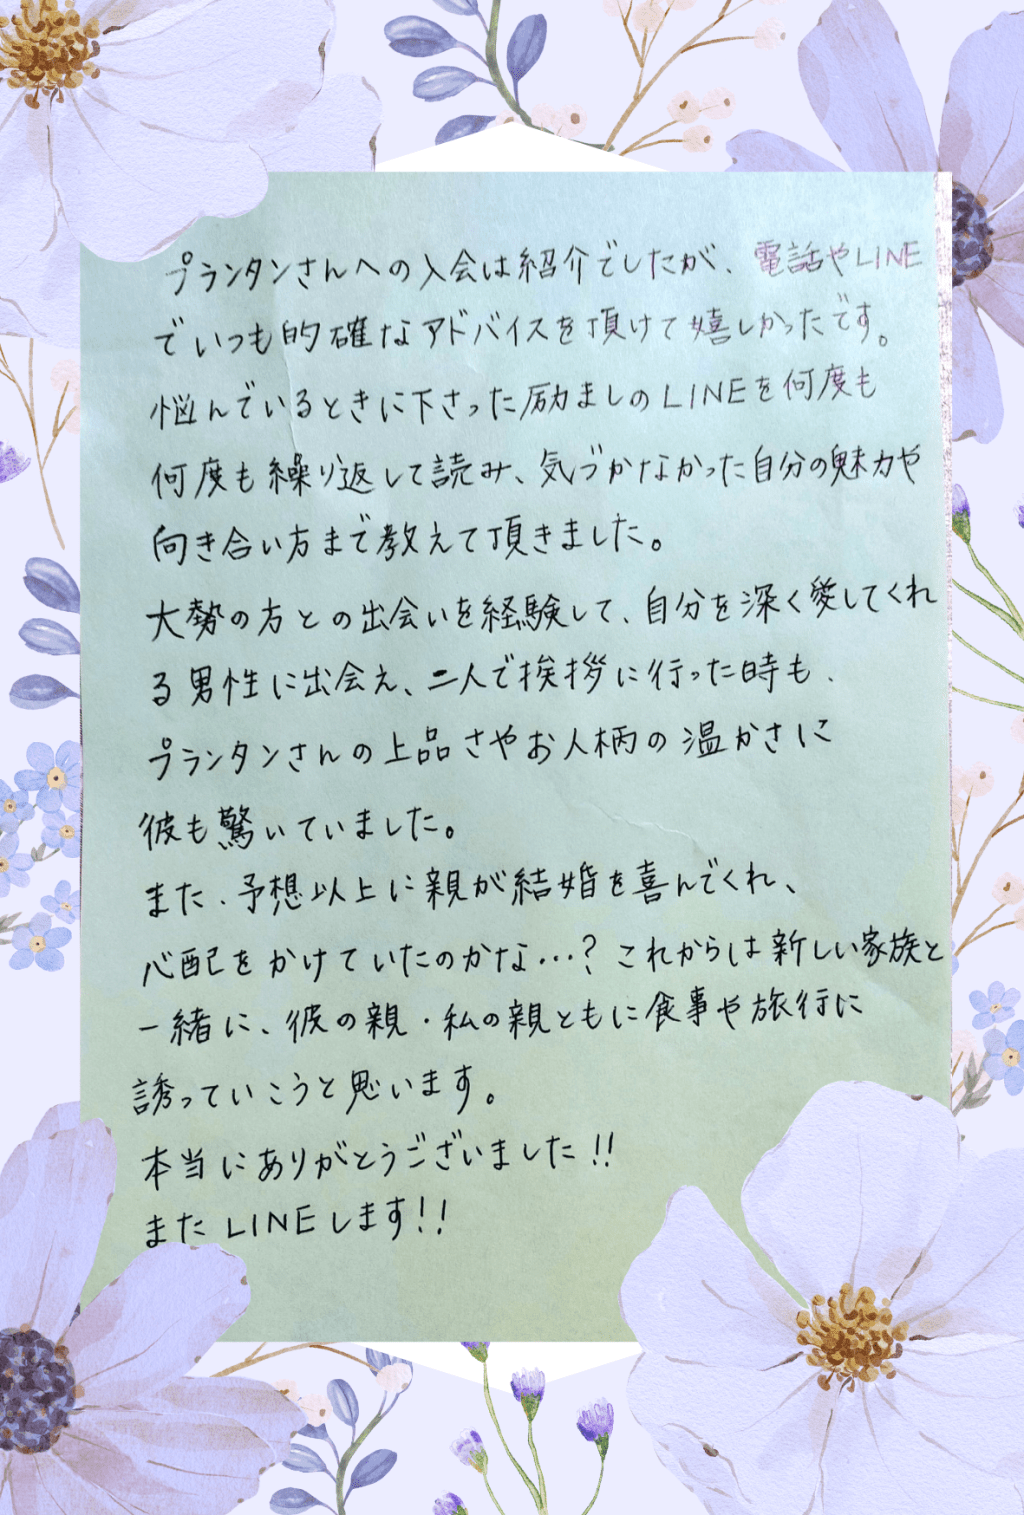 プランタンさんへの入会は紹介でしたが、電話やLINE
でいつも的確なアドバイスを頂けて嬉しかったです。
悩んでいるときに下さった励ましのLINEを何度も
何度も繰り返して読み、気づかなかった自分の魅力や
向き合い方まで教えて頂きました。
大勢の方との出会いを経験して、自分を深く愛してくれ
る男性に出会え、二人で挨拶に行った時も、
プランタンさんの上品さやお人柄の温かさに
彼も驚いていました。
また、予想以上に親が結婚を喜んでくれ、
心配をかけていたのかな…？これからは新しい家族と
一緒に、彼の親・私の親ともに食事や旅行に
誘っていこうと思います。
本当にありがとうございました!!
またLINEします!!